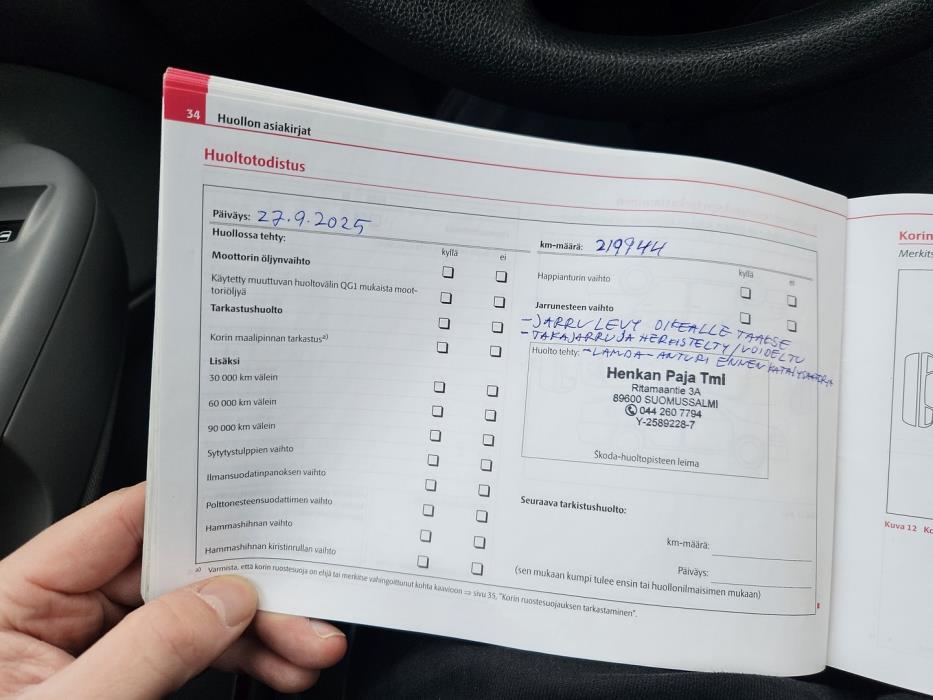 34 Huollon asiakirjat
Huoltotodistus
Päiväys: 27.9.2025
Huollossa tehty:
kyllä ei
Moottorin öljynvaihto
Käytetty muuttuvan huoltovälin QG1 mukaista moot-
toriöljyä
Tarkastushuolto
Korin maalipinnan tarkastus a)
Lisäksi
30 000 km välein
60 000 km välein
90 000 km välein
Sytytystulppien vaihto
Ilmansuodatinpanoksen vaihto
Polttonesteensuodattimen vaihto
Hammashihnan vaihto
Hammashihnan kiristinrullan vaihto
km-määrä: 219944
kyllä ei
Happianturin vaihto
Jarrunesteen vaihto
-JARRULEVY OIKEALLE TAAKSE
-TAKAJARRUJA HERKISTELTY/VOIDELTU
Huolto tehty: -LAMDA-ANTURI ENNEN KATALYSAATTORIA
Henkan Paja Tml
Ritamaantie 3A
89600 SUOMUSSALMI
044 260 7794
Y-2589228-7
Škoda-huoltopisteen leima
Seuraava tarkistushuolto:
km-määrä:
Päiväys:
(sen mukaan kumpi tulee ensin tai huollonilmaisimen mukaan)
a) Varmista, että korin ruostesuoja on ehjä tai merkitse vahingoittunut kohta kaavioon ⇒ sivu 35, "Korin ruostesuojauksen tarkastaminen".
Korin
Merkits
Kuva 12 Ko